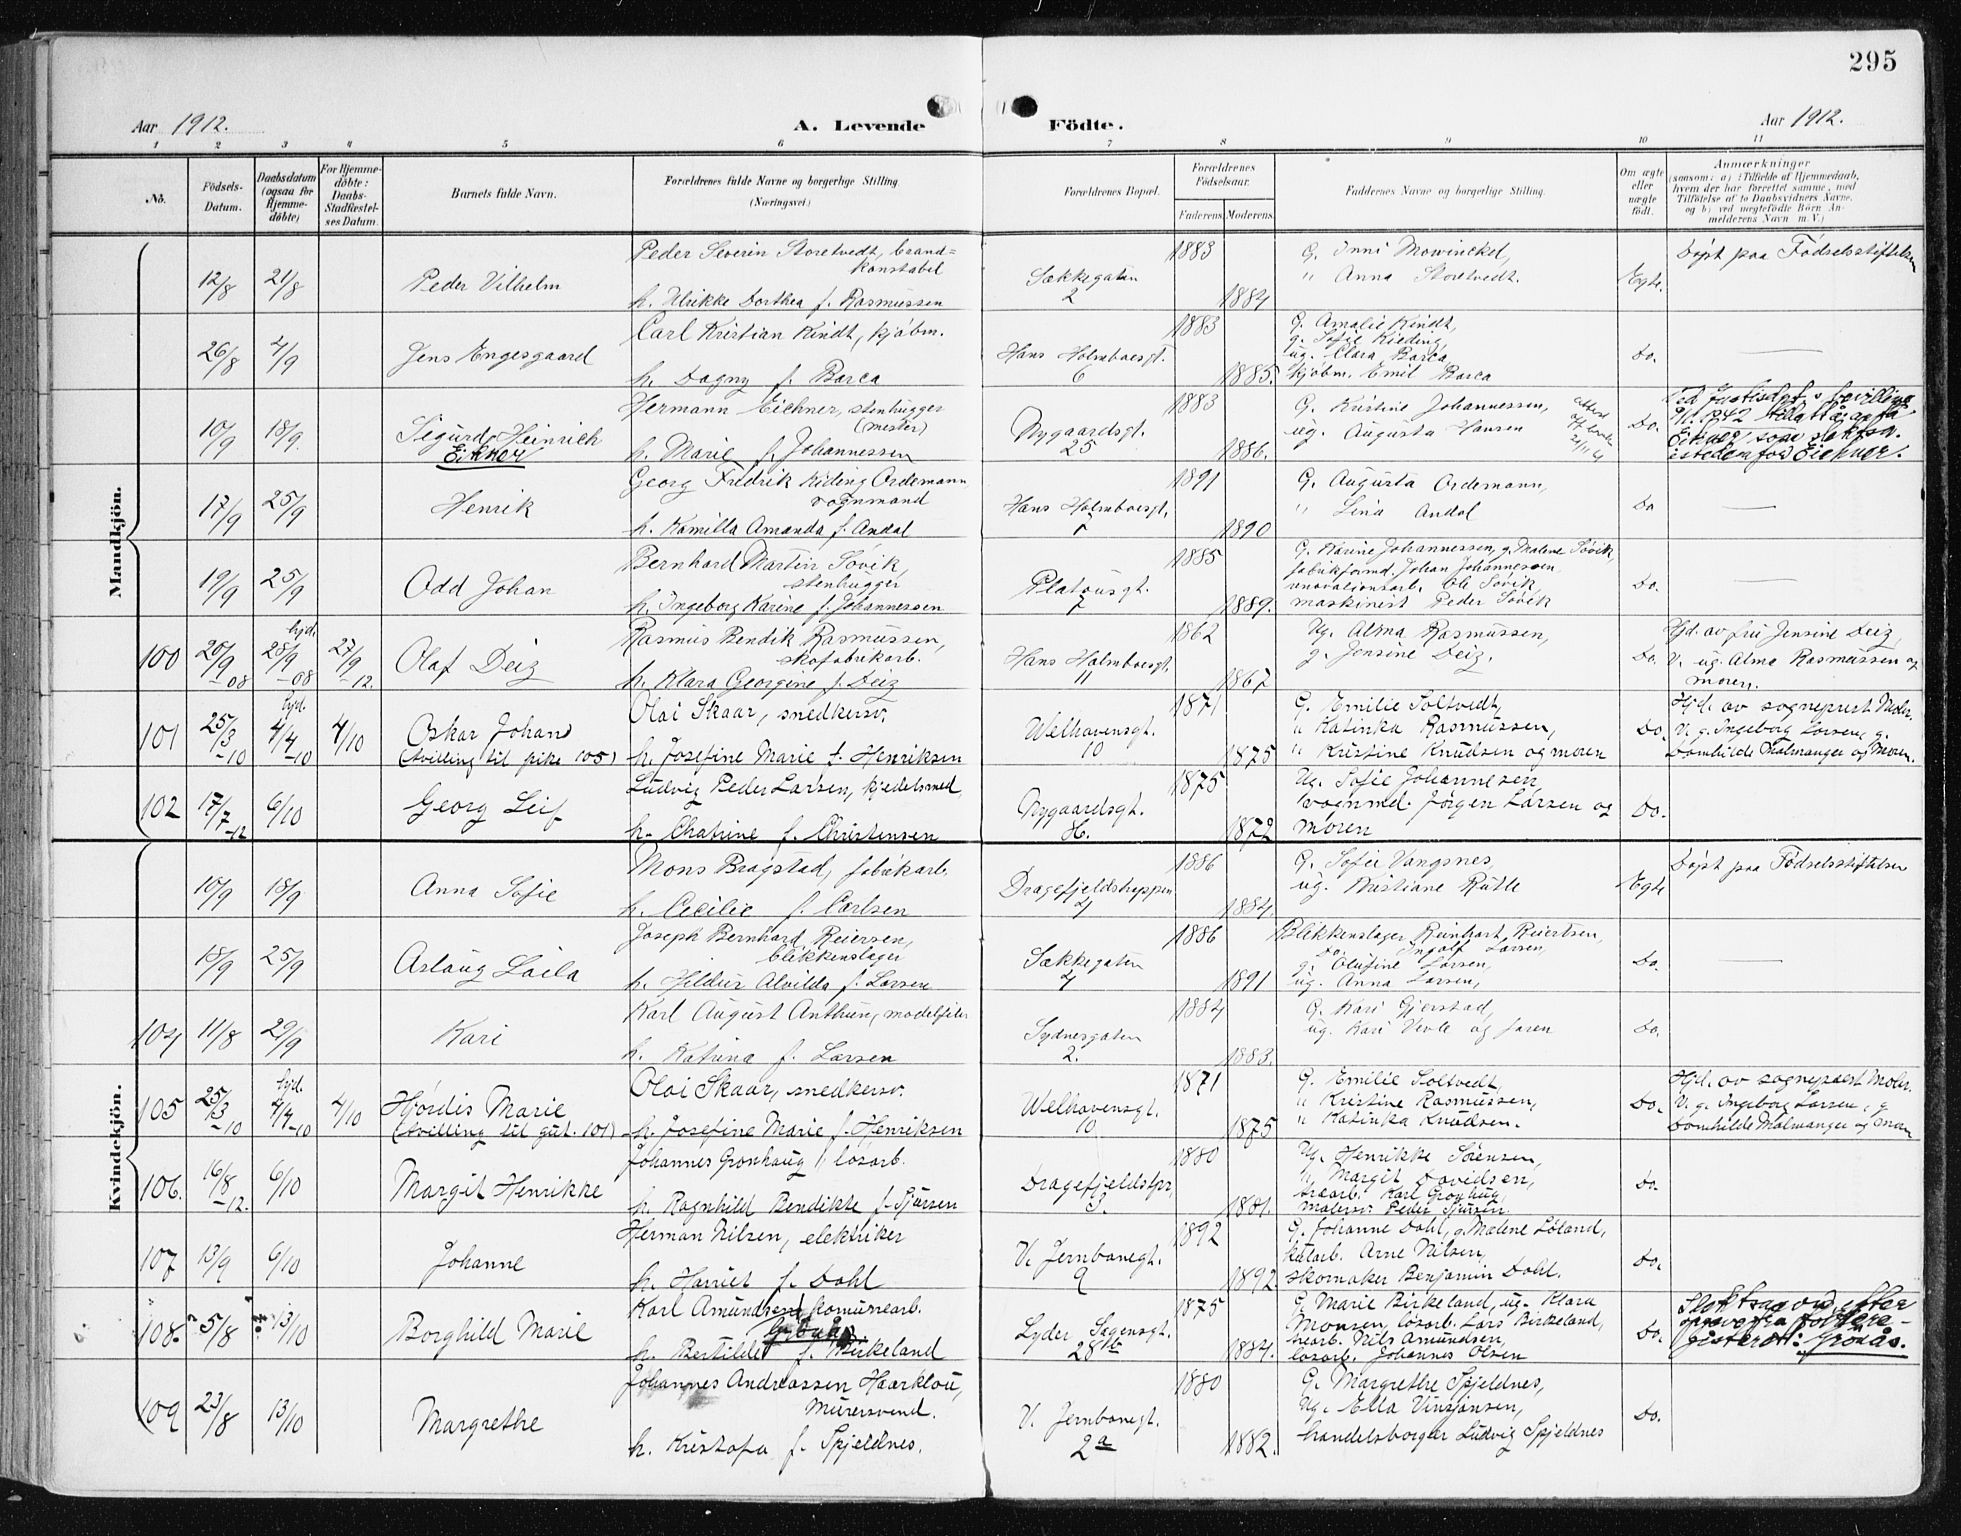 295
Aar 1912.
A. Levende Födte.
Aar 1912.
1 2 3 4 5 6 7 8 9 10 11
No.
Födsels-Datum.
Daabsdatum (ogsaa for Hjemme-döbte)
For Hjemme-döbte: Daabs-Stadfæstel-ses Datum.
Barnets fulde Navn.
Forældrenes fulde Navne og borgerlige Stilling. (Næringsvei.)
Forældrenes Bopæl.
Forældrenes Födselsaar.
Faderens. Moderens.
Faddernes Navne og borgerlige Stilling.
Om ægte eller uægte födt.
Anmærkninger
(saasom: a) i Tilfælde af Hjemmedaab,
hvem der har forrettet samme, med
Tilföielse af to Daabsvidners Navne,
og b) ved uægtefödte Börn An-
melderens Navn m. V.)
Mandkjön.
12/8 21/8 Peder Vilhelm
Peder Severin Storetvedt, brand-
konstabel
h. Ulrikke Dorthea f. Rasmussen
Sækkegaten 2
1883 1884
G. Inni Mowinckel,
" Anna Storetvedt.
Egte.
Døpt paa Fødselsstiftelsen
26/8 4/9 Jens Engesgaard
Carl Kristian Kindt, kjøbm.
h. Dagny f. Barca
Hans Holmboesgt. 6
1883 1885.
G. Amalie Kindt,
g. Sofie Kieding,
ug. Clara Barca,
kjøbm. Emil Barca
Do.
10/9 18/9. Sigurd Heinrich
Eikner
Hermann Eichner, stenhugger
(mester)
h. Marie f. Johannessen
Nygaardsgt. 25
1883 1886.
G. Kristine Johannessen,
ug. Augusta Hansen
Do.
istedenfor Eichner.
17/9 25/9 Henrik
Georg Fredrik Kiding Ordemann
vognmand
h. Kamilla Amanda f. Andal
Hans Holmboesgt. 7
1891 1890
G. Augusta Ordemann,
" Lina Andal
Do
19/9 25/9 Odd Johan
Bernhard Martin Søvik,
stenhugger
h. Ingeborg Karine f. Johannessen
Platousgt. 7
1885 1889.
G. Karine Johannessen, g. Malene Søvik,
fabrikformd. Johan Johannessen
renovationsarb. Ole Søvik
maskinist Peder Søvik
Do.
100 20/9 -08 hjd. 28/9 -08 27/9 -12. Olaf Deiz
Rasmus Bendik Rasmussen,
skofabrikarb.
h. Klara Georgine f. Deiz
Hans Holmboesgt. 11
1862 1867
Ug. Alma Rasmussen,
g. Jensine Deiz.
Do.
Hjd. av fru Jensine Deiz,
V. ug. Alma Rasmussen og
moren.
101 25/3 -10 hjd. 4/4 -10 4/10 Oskar Johan
(tvilling til pike 105)
Olai Skaar, snedkersv.
h. Josefine Marie f. Henriksen
Welhavensgt. 10
1871 1875
G. Emilie Soltvedt,
" Katinka Rasmussen,
" Kristine Knudsen og moren
Do.
Hjd. av sogneprest Mohr.
V. g. Ingeborg Larsen, g.
Domhilde Malmanger og Moren.
102 17/7 -12 6/10 Georg Leif
Ludvig Peder Larsen, kjedelsmed
h. Chatrine f. Christensen
Nygaardsgt. H.
1875 1872
Ug. Sofie Johannesen,
vognmd. Jørgen Larsen og
moren
Do.
Kvindekjön.
10/9 18/9 Anna Sofie
Mons Bragstad, fabrikarb.
h. Cecilie f. Carlsen
Dragefjeldstreppen 4
1886 1884.
G. Sofie Vangsnes,
ug. Kristiane Rutle
Egte
Døpt paa Fødselsstiftelsen
18/9 25/9 Aslaug Laila
Joseph Bernhard Reiersen,
blikkenslager
h. Hildur Alvilda f. Larsen
Sækkegaten 4
1886 1891
Blikkenslager Reinhart Reiertsen,
Do. Ingolf Larsen,
g. Olufine Larsen,
ug. Anna Larsen,
Do.
104 11/8 29/9 Kari
Karl August Anthun, modelfiler
h. Katrina f. Larsen
Sydnesgaten 2.
1884 1883.
G. Kari Gjerstad,
ug. Kari Vevle og faren
Do.
105 25/3 -10 hjd. 4/4 -10 4/10 Hjørdis Marie
(tvilling til gut. 101)
Olai Skaar, snedkersv.
h. Josefine Marie f. Henriksen
Welhavensgt. 10
1871 1875
G. Emilie Soltvedt,
" Kristine Rasmussen,
" Katinka Knudsen.
Do.
Hjd. av sogneprest Mohr.
V. g. Ingeborg Larsen, g.
Domhilde Malmanger og Moren
106. 16/8 -12. 6/10 Margit Henrikke
Johannes Grønhaug, losarb.
h. Ragnhild Bendikte f. Sjursen
Dragefjeldstpr. 3.
1880 1881.
Ug. Henrikke Sørensen,
" Margit Davidsen,
Karl Grønhug,
malersv. Peder Sjursen
Do.
107 13/9 6/10 Johanne
Herman Nilsen, elektriker
h. Harriet f. Dahl
V. Jernbanegt. 9
1892 1892.
G. Johanne Dahl, g. Malene Løland,
Arne Nilsen,
skomaker Benjamin Dahl.
Do.
108. 5/8 13/10 Borghild Marie
Karl Amundsen, komunearb.
Grønås.
h. Bertilde f. Birkeland
Lyder Sagensgt. 28b
1875 1884.
G. Marie Birkeland, ug. Klara
Monsen, losarb. Lars Birkeland,
Nils Amundsen,
losarb. Johannes Olsen
Do.
Slektsnavn efter
opgave fra folkere-
gisteret: Grønås.
109 23/8 13/10 Margrethe
Johannes Andreassen Haarklou,
Murersvend.
h. Kristofa f. Spjeldnes.
V. Jernbanegt. 2a
1880 1882.
G. Margrethe Spjeldnes,
Ug. Ella Vinsjansen,
handelsborger Ludvig Spjeldnes
Do.